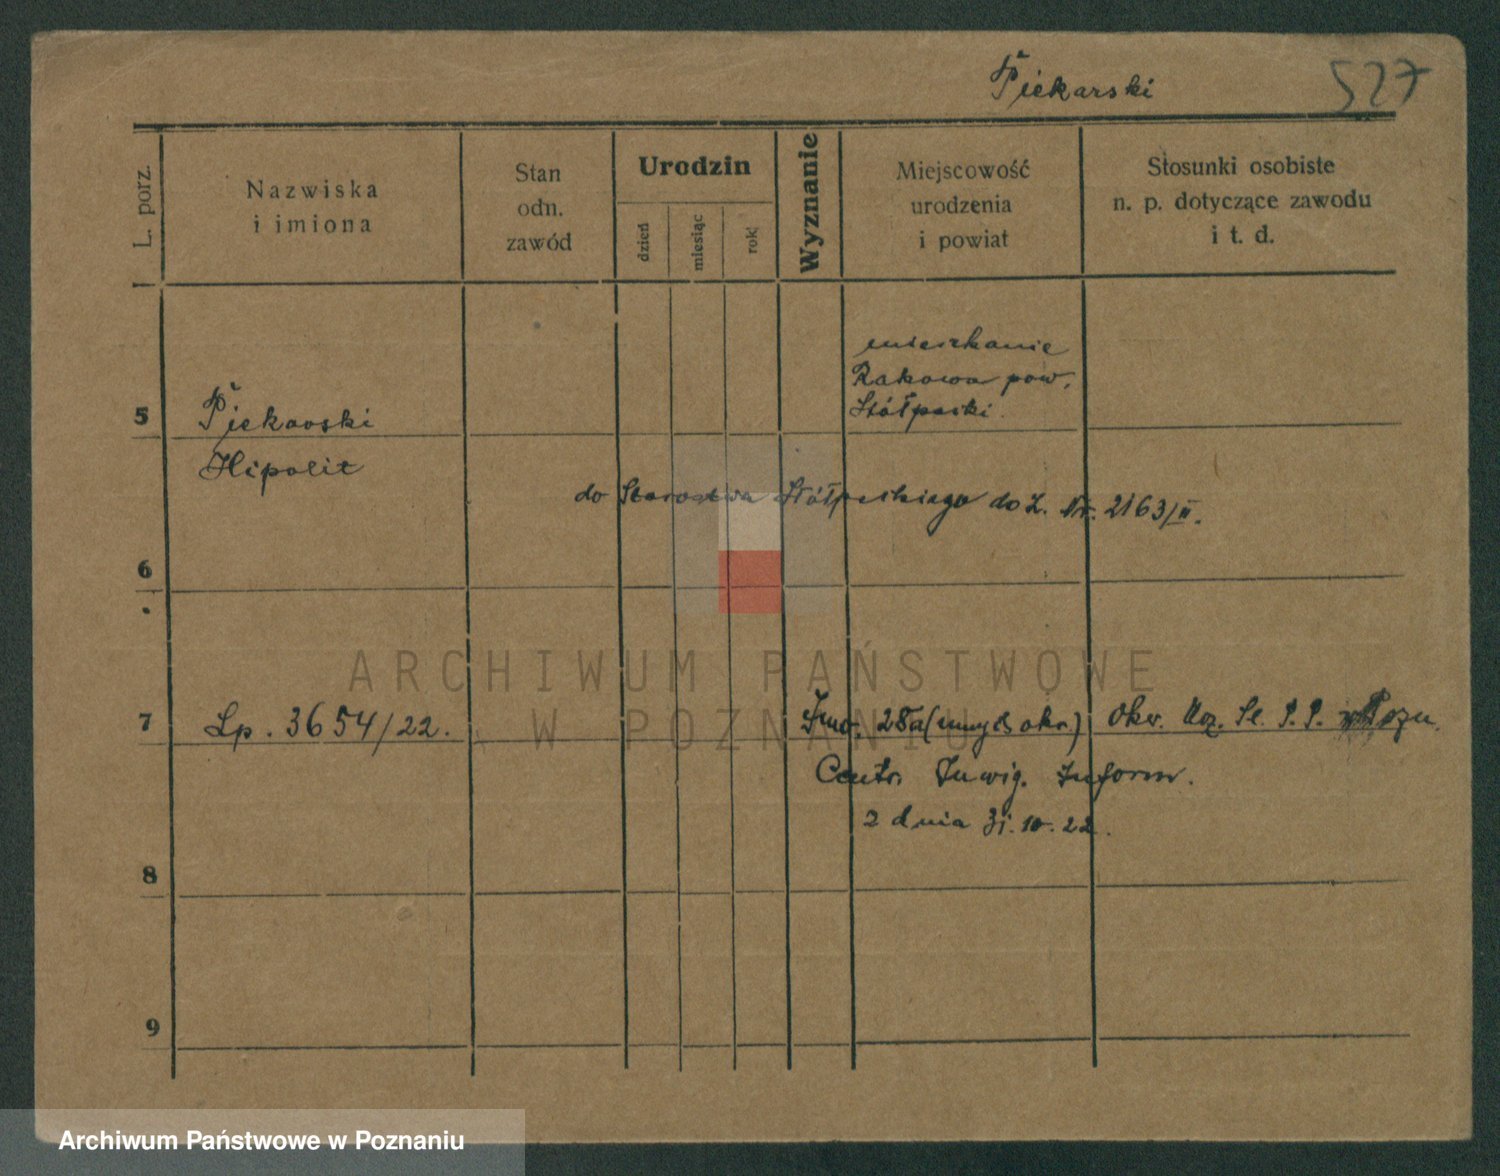 Piekarski 527
L. porz.
Nazwiska
i imiona
Stan
odn.
zawód
Urodzin
dzień
miesiąc
rok
Wyznanie
Miejscowość
urodzenia
i powiat
Stosunki osobiste
n. p. dotyczące zawodu
i t. d.
mieszkanie
Rakowa pow.
Stółpecki.
5 Piekarski
Hipolit
do Starostwa Stółpeckiego do L. Nr. 2163/II.
6
7 Lp. 3654/22. 28a ( okr.) P. P. Pozn.
Centr. Inwig. Inform.
z dnia 31.10.22.
8
9
ARCHIWUM PAŃSTWOWE
W POZNANIU
Archiwum Państwowe w Poznaniu